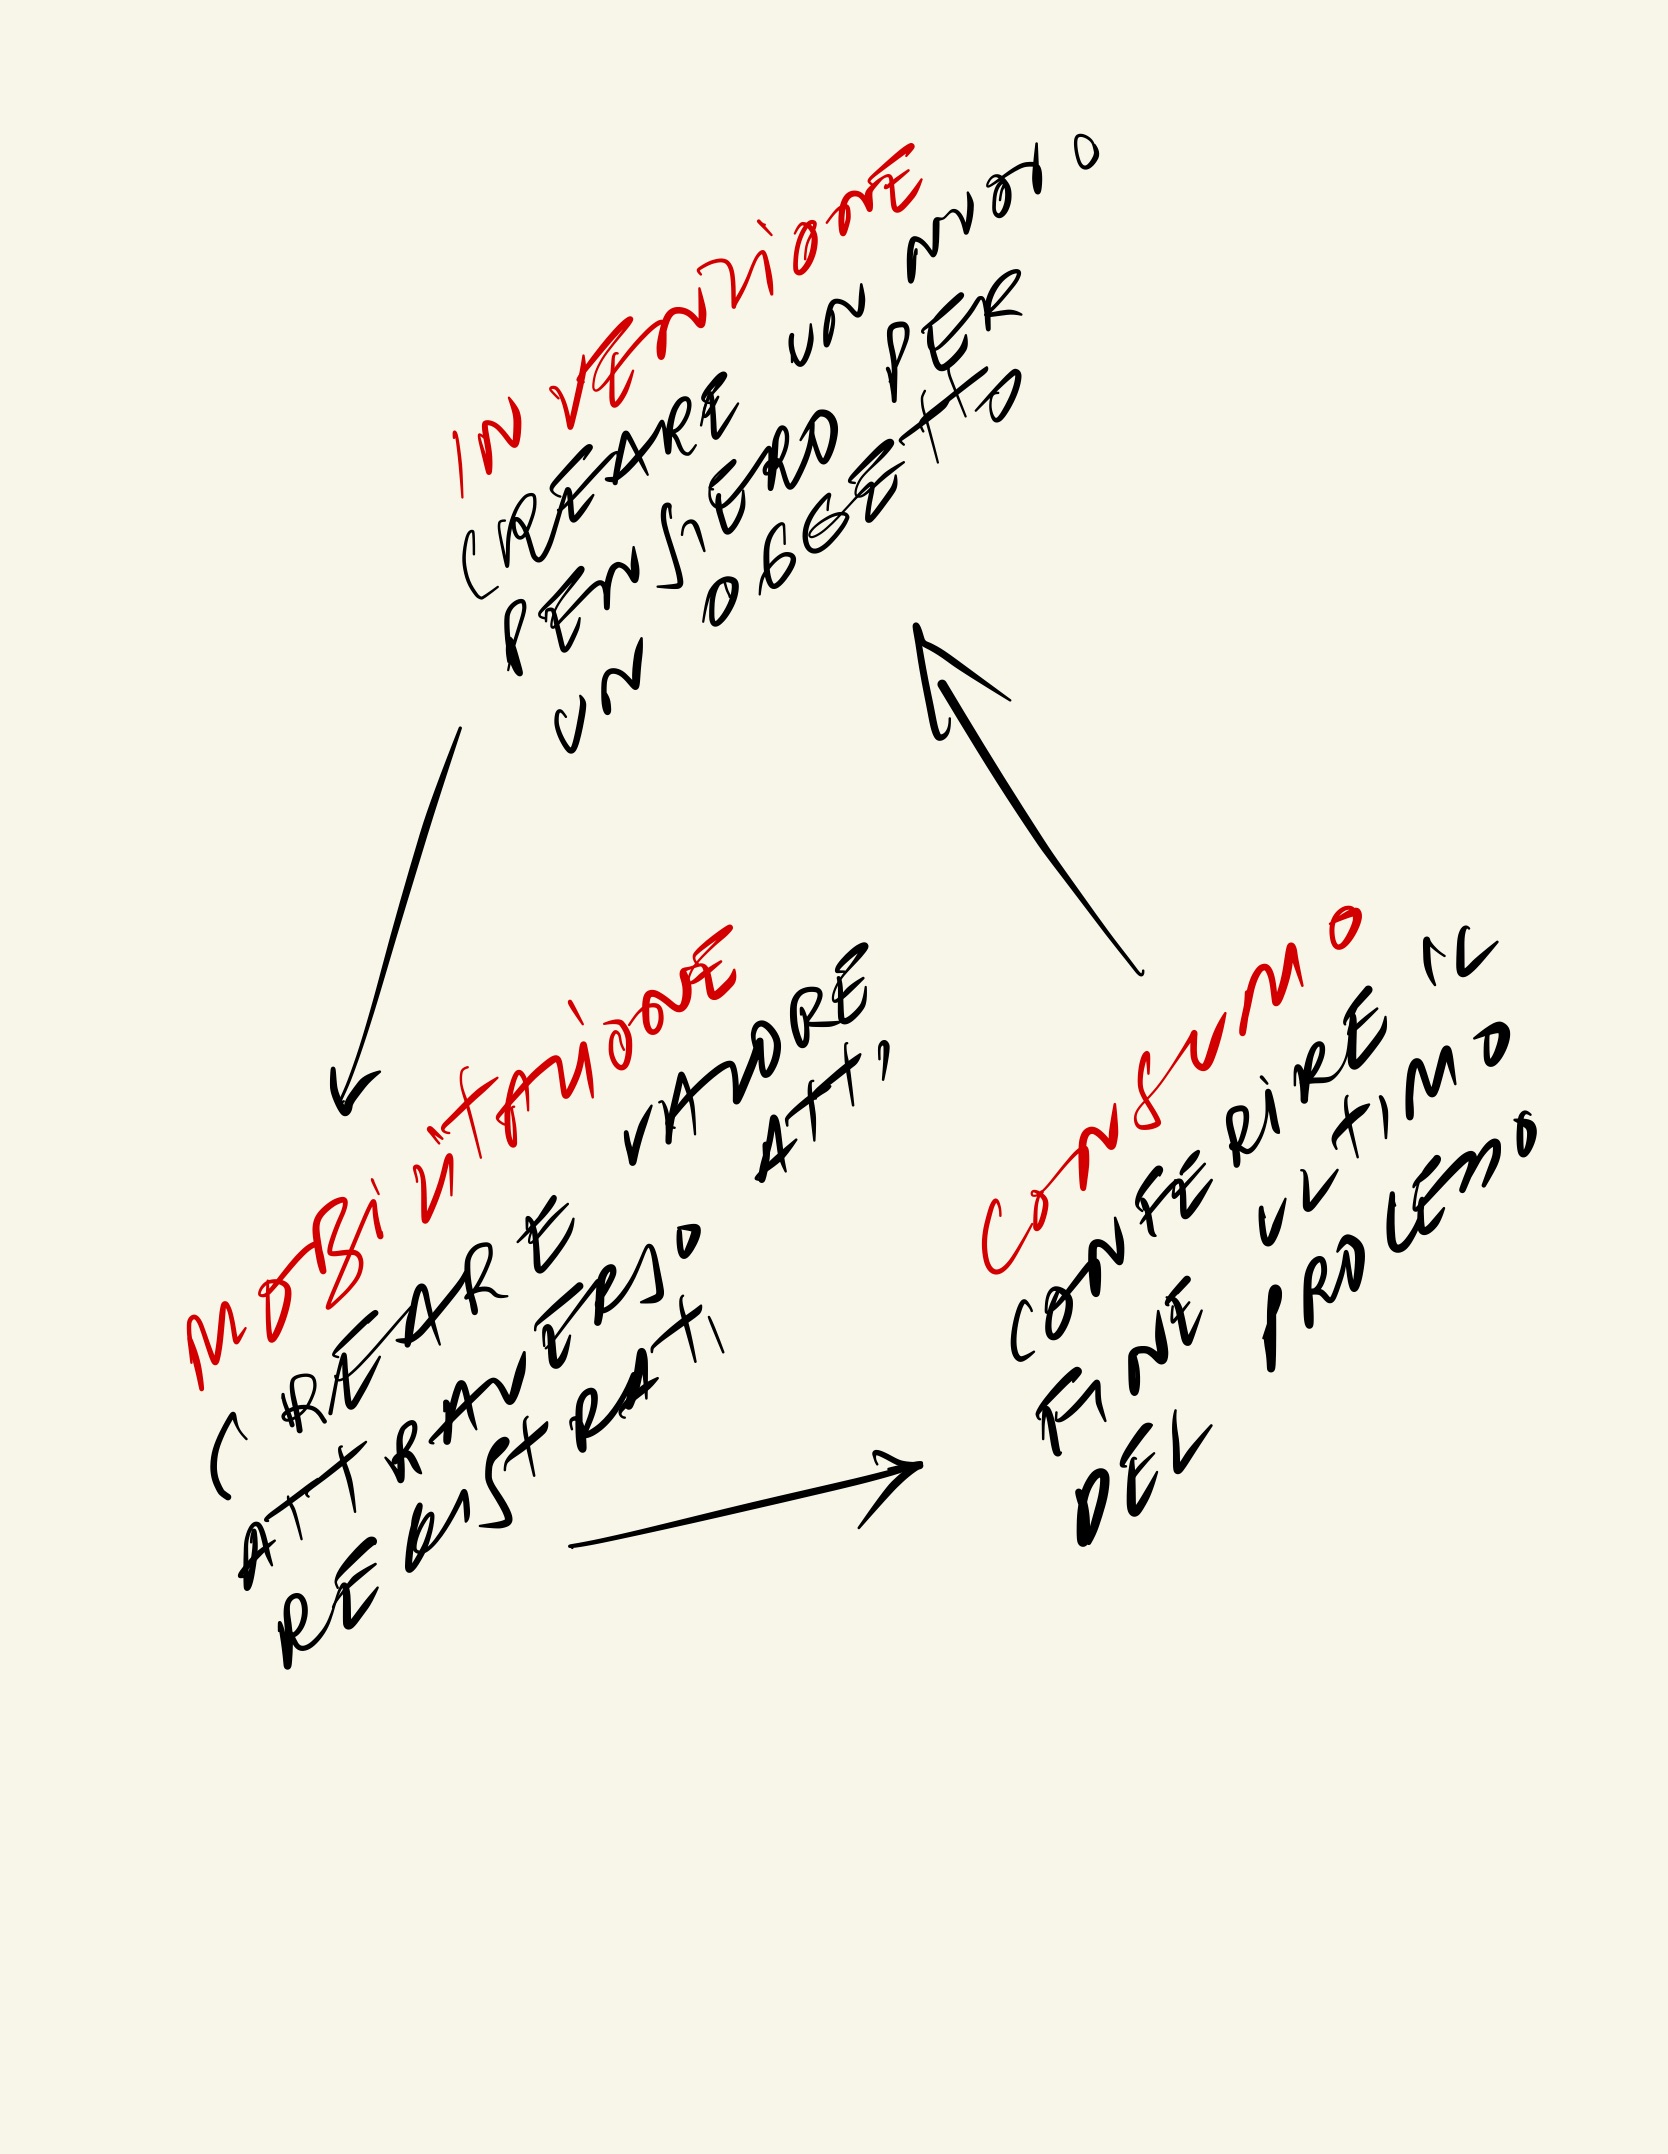 INVENZIONE
CREARE UN NUOVO
PENSIERO PER
UN OGGETTO
MOBILITAZIONE
CREARE VALORE
ATTRAVERSO ATTI
REGISTRATI
CONSUMO
CONFERIRE IL
FINE ULTIMO
DEL PROCESSO